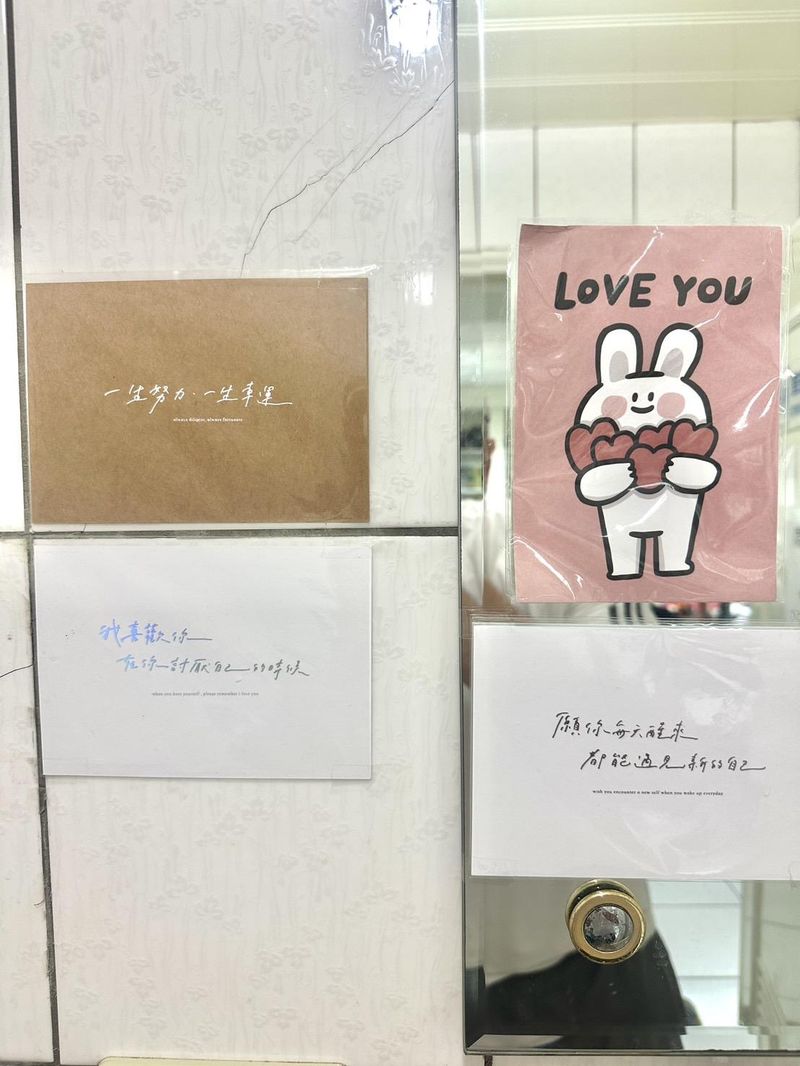 一生努力·一生幸運
always diligent, always fortunate
我喜歡你
在你討厭自己的時候
when you hate yourself , please remember i love you
LOVE YOU
願你每天醒來
都能遇見新的自己
wish you encounter a new self when you wake up everyday